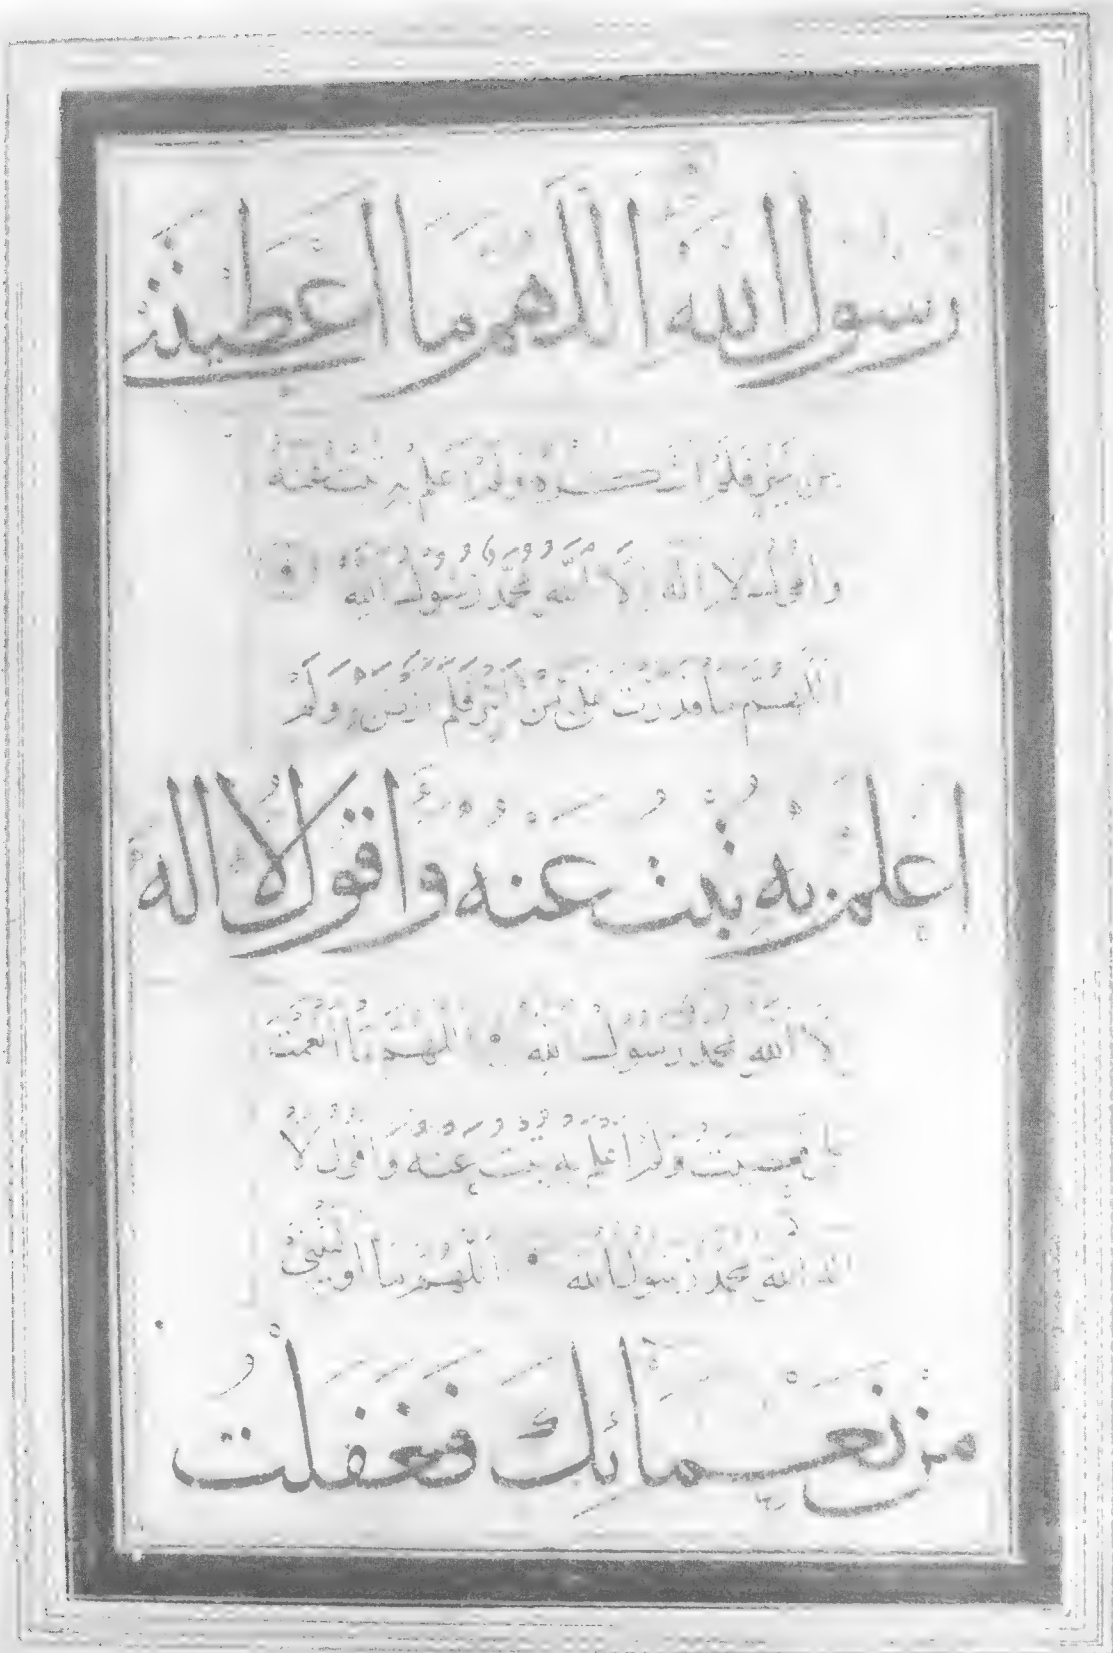 رسول الله اللهم ما اعطيتني
من خير فلم اشكره ولم اعلم به
واقول لا اله الا الله محمد رسول الله
اللهم ما قدرت علي من ولم
اعلم به تبت عنه واقول لا اله
الا الله محمد رسول الله اللهم ما انعمت
علي فعصيت ولم اعلم به تبت عنه واقول لا
اله الا الله محمد رسول الله اللهم ما اوليتني
من نعمائك فغفلت